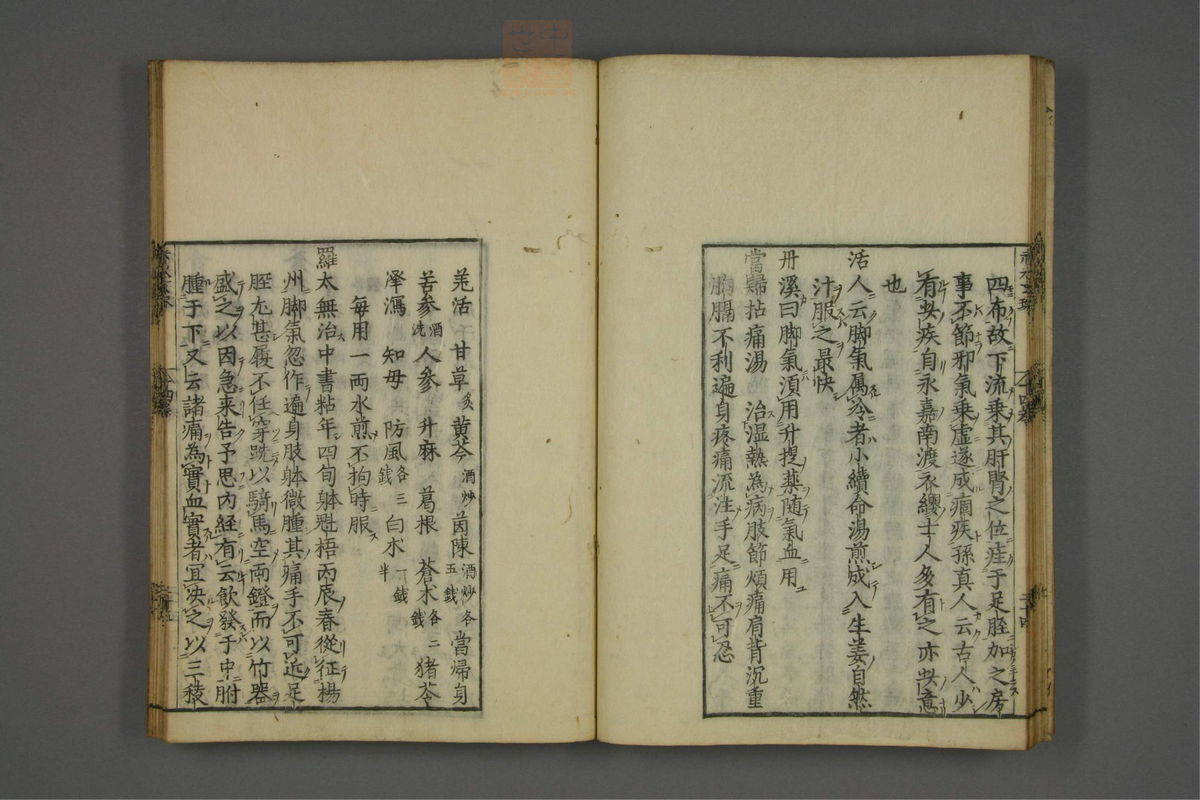 四布故下流乗其肝腎之位疰于足脛加之房
事不節邪氣乗虚遂成痼疾孫真人云古人少
有此疾自永嘉南渡衣纓士人多有之亦此意
也
活人云脚氣属冷者小續命湯煎成入生姜自然
汁服之最快
丹溪曰脚氣湏用升提薬随氣血用
當歸拈痛湯 治湿熱為病肢節煩痛肩背沉重
胸膈不利遍身疼痛流注手足痛不可忍
羌活 甘草炙 黄芩酒炒 茵陳酒炒各五錢 當帰身
苦参酒洗 人参 升麻 葛根 蒼朮各二錢 猪苓
澤瀉 知母 防風各三錢 白朮一錢半
毎用一両水煎不拘時服
羅太無治中書粘年四旬躰魁梧丙辰春從征楊
州脚氣忽作遍身肢躰微腫其痛手不可近足
脛尤甚履不任穿跣以騎馬空両鐙而以竹器
盛之以因急来告予思内経有云飲發于中胕
腫于下又云諸痛為實血實者宜决之以三稜